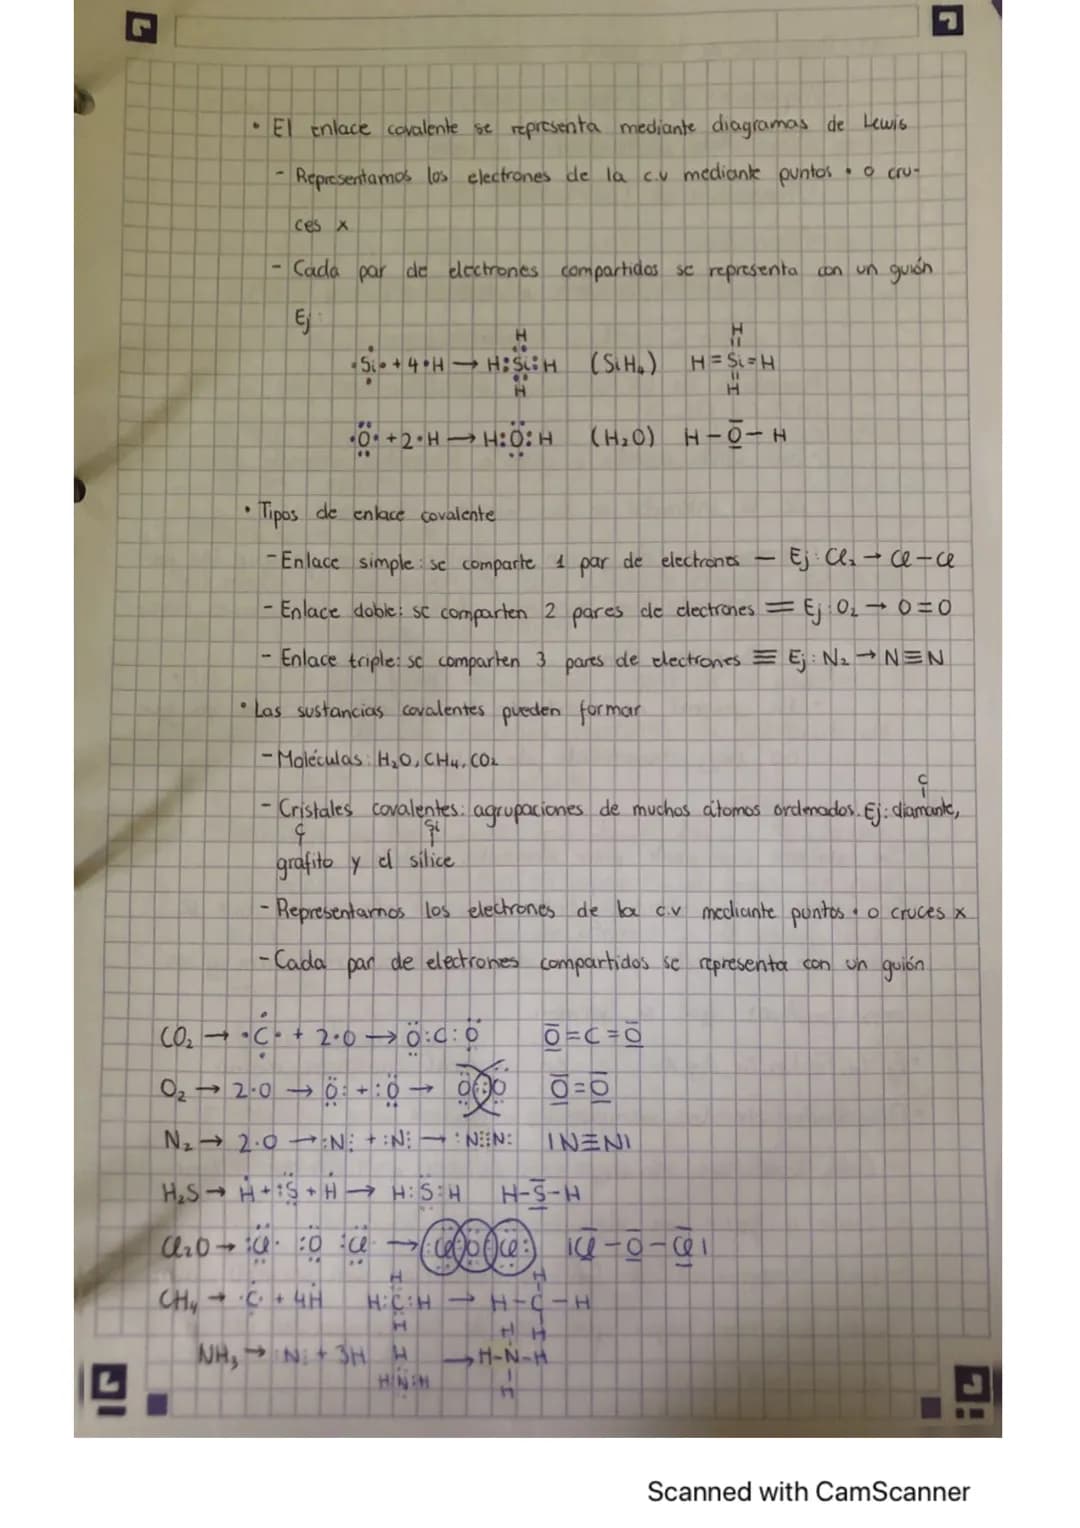 • El enlace covalente se representa mediante diagramas de Lewis
- Representamos los electrones de la c.v mediante puntos • o cru-
ces x
- Cada par de electrones compartidos se representa con un guión
Ej:
H H
·Si· + 4·H → H:Si:H (SiH₄) H=Si=H
H H
·Ö· + 2·H → H:Ö:H (H₂O) H-O-H
• Tipos de enlace covalente
- Enlace simple: se comparte 1 par de electrones — Ej: Cl₂ → Cl-Cl
- Enlace doble: se comparten 2 pares de electrones = Ej: O₂ → O=O
- Enlace triple: se comparten 3 pares de electrones ≡ Ej: N₂ → N≡N
• Las sustancias covalentes pueden formar
- Moléculas: H₂O, CH₄, CO₂
C
- Cristales covalentes: agrupaciones de muchos átomos ordenados. Ej: diamante,
C Si
grafito y el sílice
- Representamos los electrones de la c.v mediante puntos • o cruces x
- Cada par de electrones compartidos se representa con un guión
CO₂ → ·C· + 2·O → Ö:C:Ö O=C=O
O₂ → 2·O → Ö: + :Ö → O=O
N₂ → 2·O → :N: + :N: → :N⋮⋮N: |N≡N|
H₂S → H + :S + H → H:S:H H-S-H
Cl₂O → :Cl· :O :Cl → Cl O Cl: |Cl-O-Cl|
H H
CH₄ → ·C· + 4H H:C:H → H-C-H
H H
NH₃ → N: + 3H H → H-N-H
H:N:H H
Scanned with CamScanner